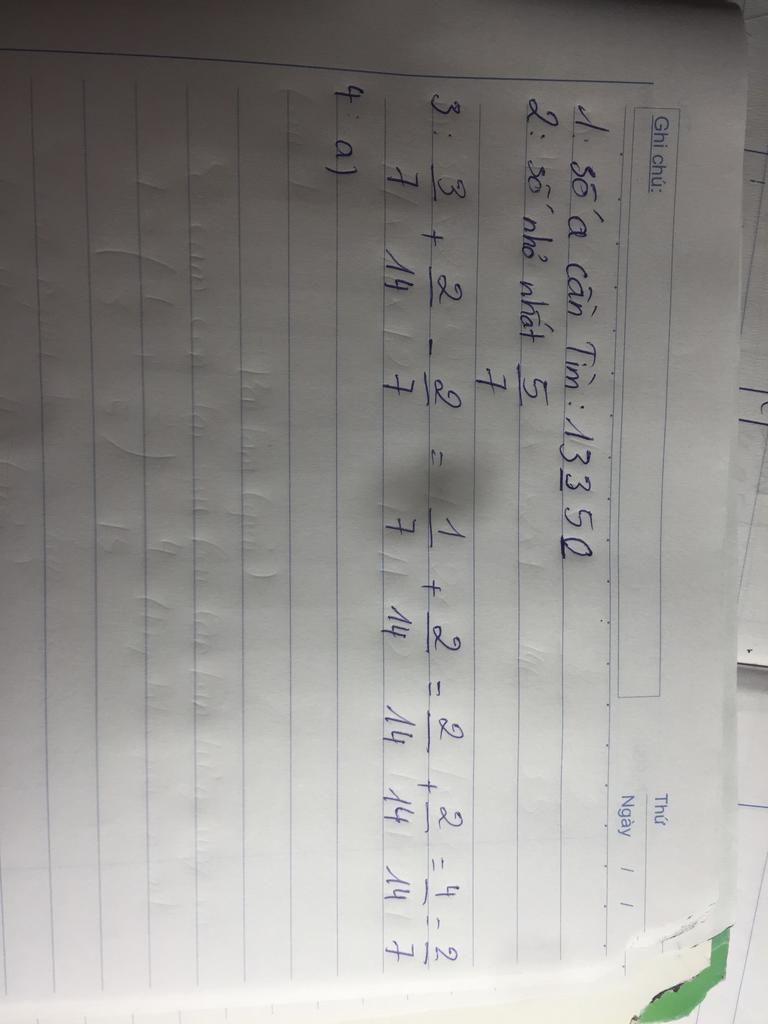 Ghi chú:
Thứ
Ngày / /
1: số a cần Tìm: 13350
2: số nhỏ nhất 5/7
3: 3/7 + 2/14 - 2/7 = 1/7 + 2/14 = 2/14 + 2/14 = 4/14 - 2/7
4: a)